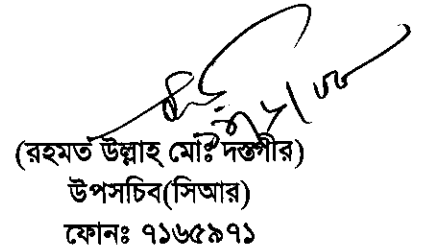 (রহমত উল্লাহ্ মোঃ দস্তগীর)
উপসচিব(সিআর)
ফোনঃ ৭১৬৫৯৭১